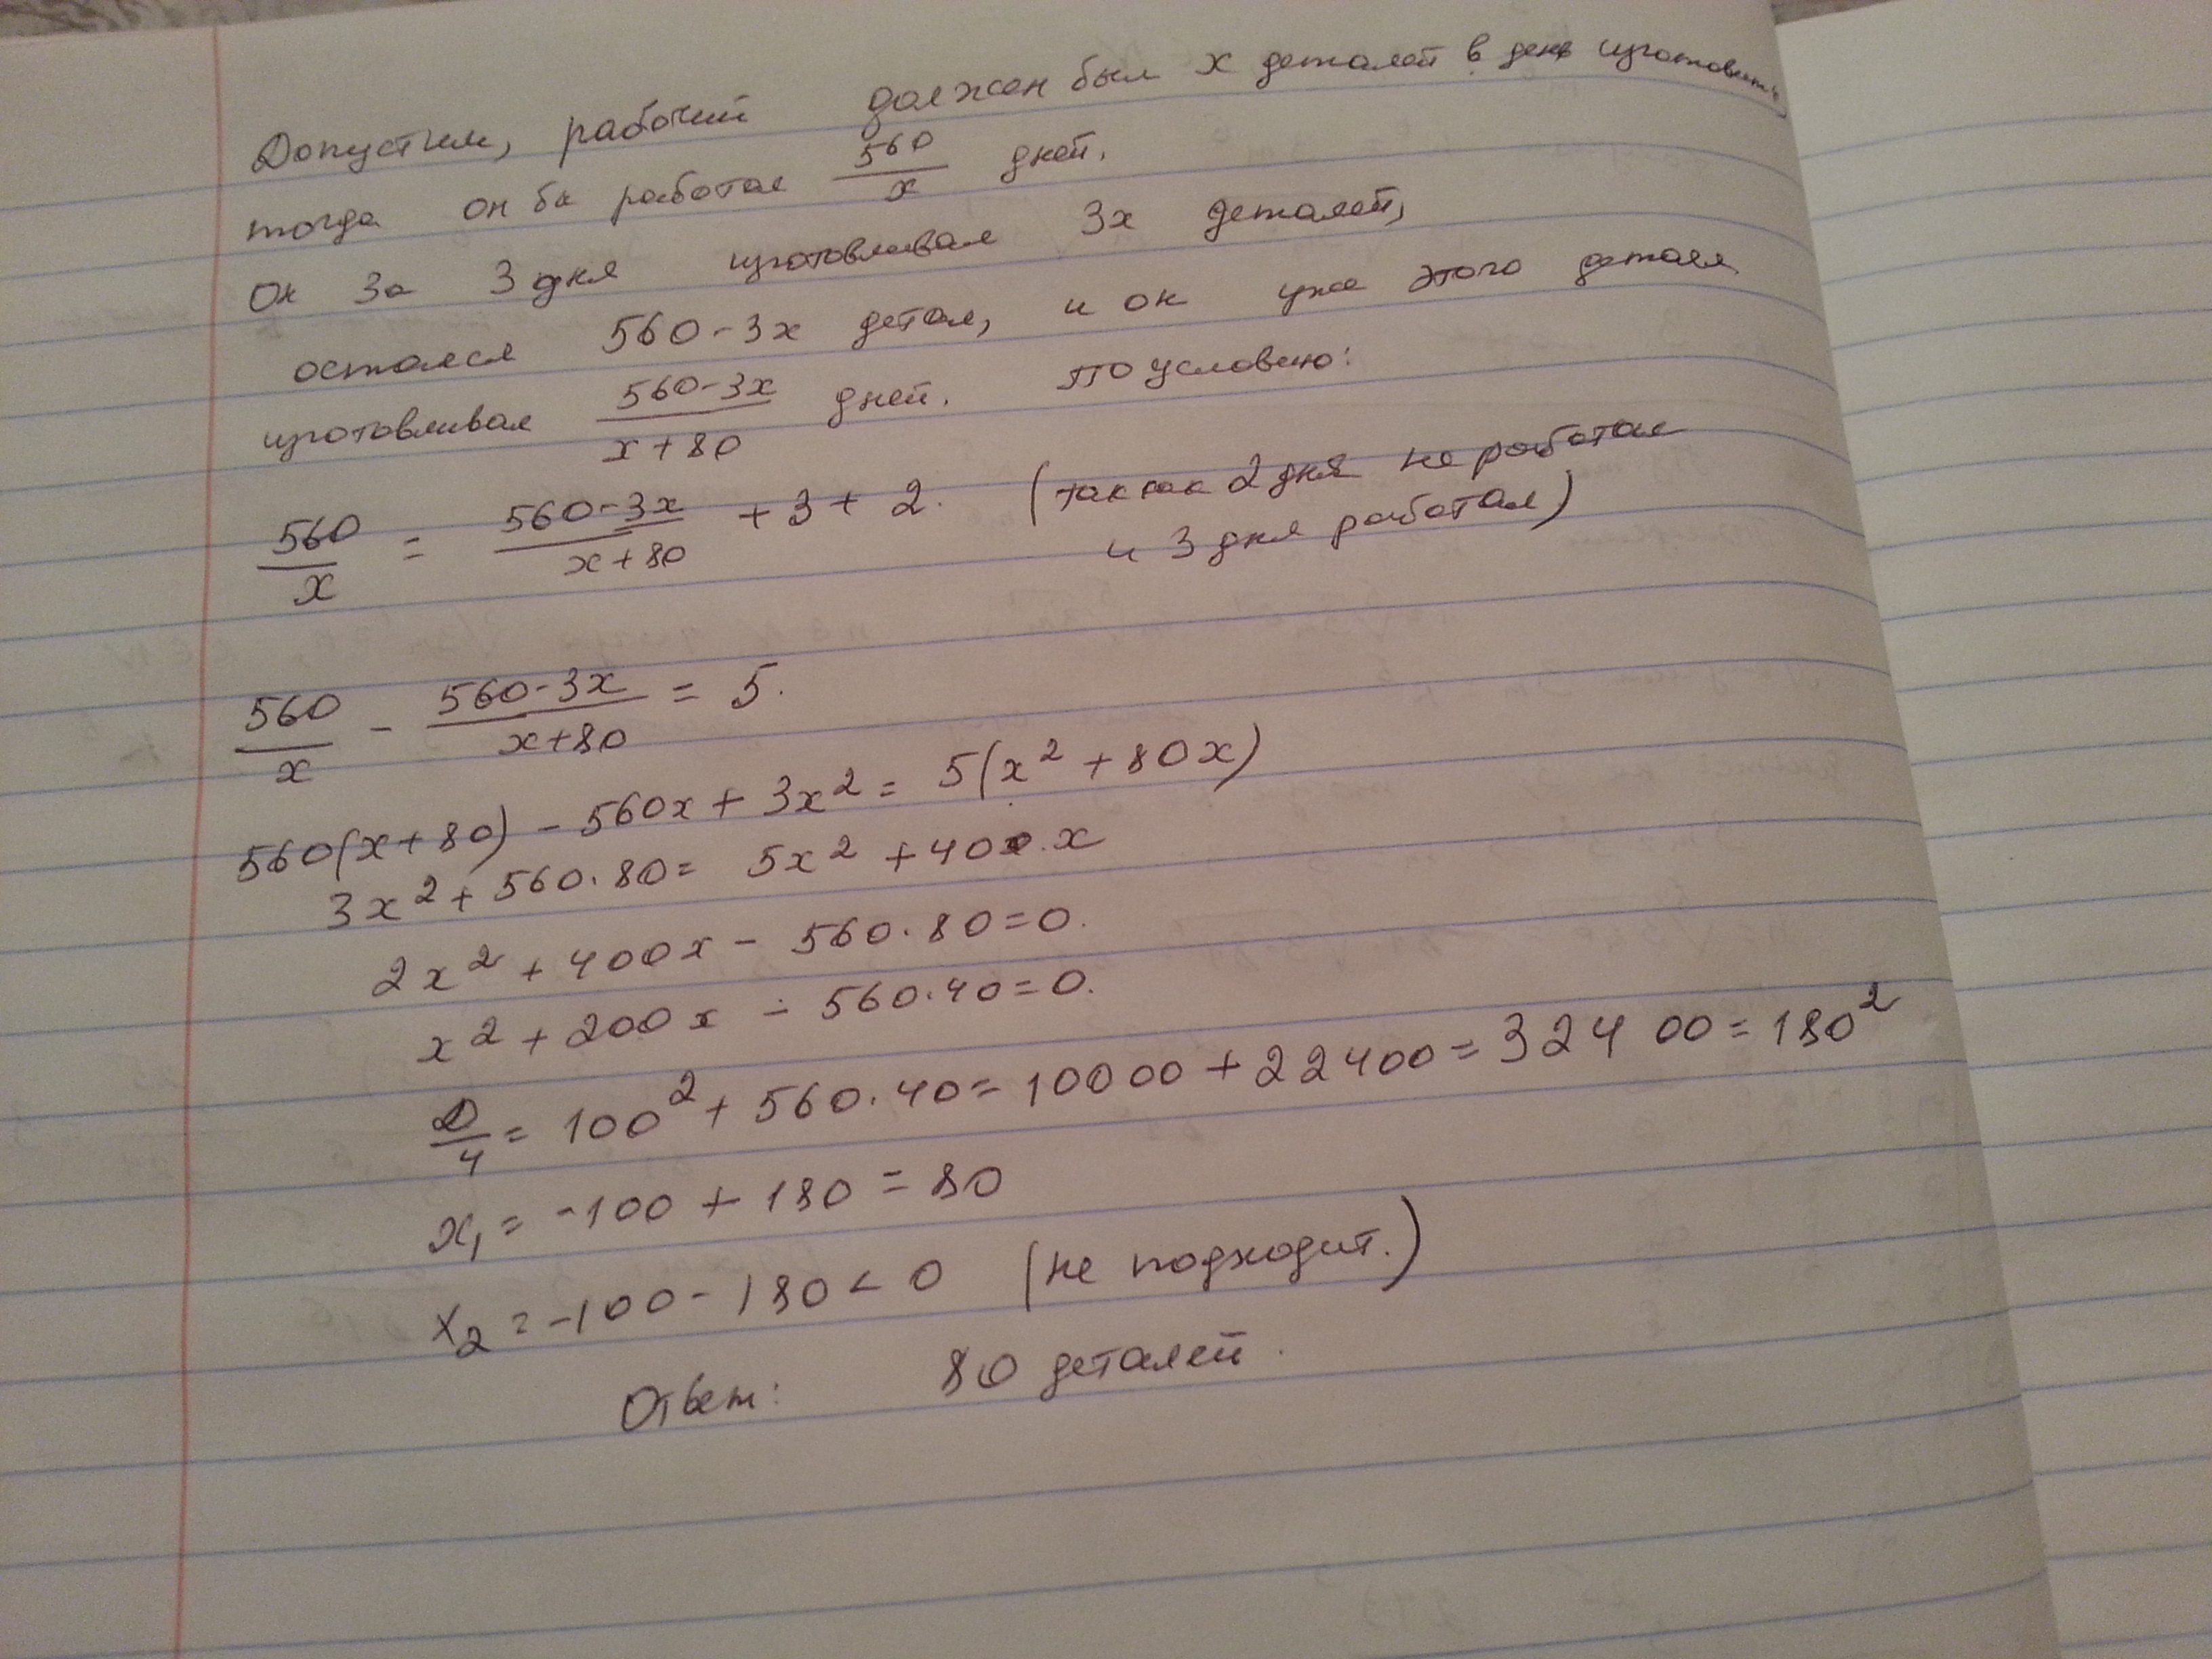 Допустим, рабочий должен был x деталей в день изготовить,
тогда он бы работал 560/x дней.
Он за 3 дня изготовливал 3x деталей,
остался 560-3x детал, и он уже этого детали
изготовливал (560-3x)/(x+80) дней. По условию:
560/x = (560-3x)/(x+80) + 3 + 2. (так как 2 дня не работал
и 3 дня работал)
560/x - (560-3x)/(x+80) = 5.
560(x+80) - 560x + 3x² = 5(x² + 80x)
3x² + 560·80 = 5x² + 400·x
2x² + 400x - 560·80 = 0.
x² + 200x - 560·40 = 0.
D/4 = 100² + 560·40 = 10000 + 22400 = 32400 = 180²
x₁ = -100 + 180 = 80
x₂ = -100 - 180 < 0 (не подходит.)
Ответ: 80 деталей.